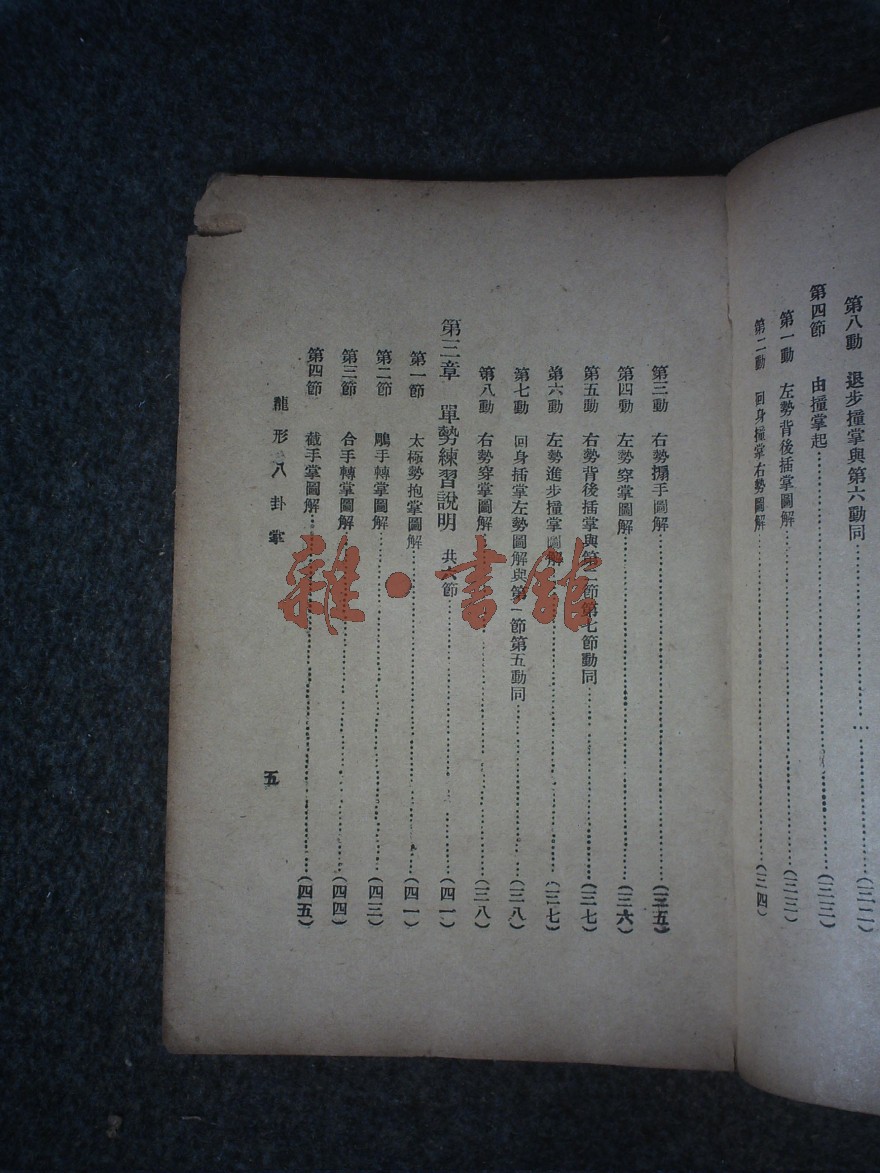 第八動 退步撞掌與第六動同……(三二)
第四節 由撞掌起……(三三)
第一動 左勢背後插掌圖解……(三三)
第二動 回身撞掌右勢圖解……(三四)
第三動 右勢搨手圖解……(三五)
第四動 左勢穿掌圖解……(三六)
第五動 右勢背後插掌與第二節第七節動同……(三七)
第六動 左勢進步撞掌圖解……(三七)
第七動 回身插掌左勢圖解與第一節第五動同……(三八)
第八動 右勢穿掌圖解……(三八)
第三章 單勢練習說明 共六節……(四一)
第一節 太極勢抱掌圖解……(四一)
第二節 鵰手轉掌圖解……(四三)
第三節 合手轉掌圖解……(四四)
第四節 截手掌圖解……(四五)
龍形八卦掌
五
雜·書館